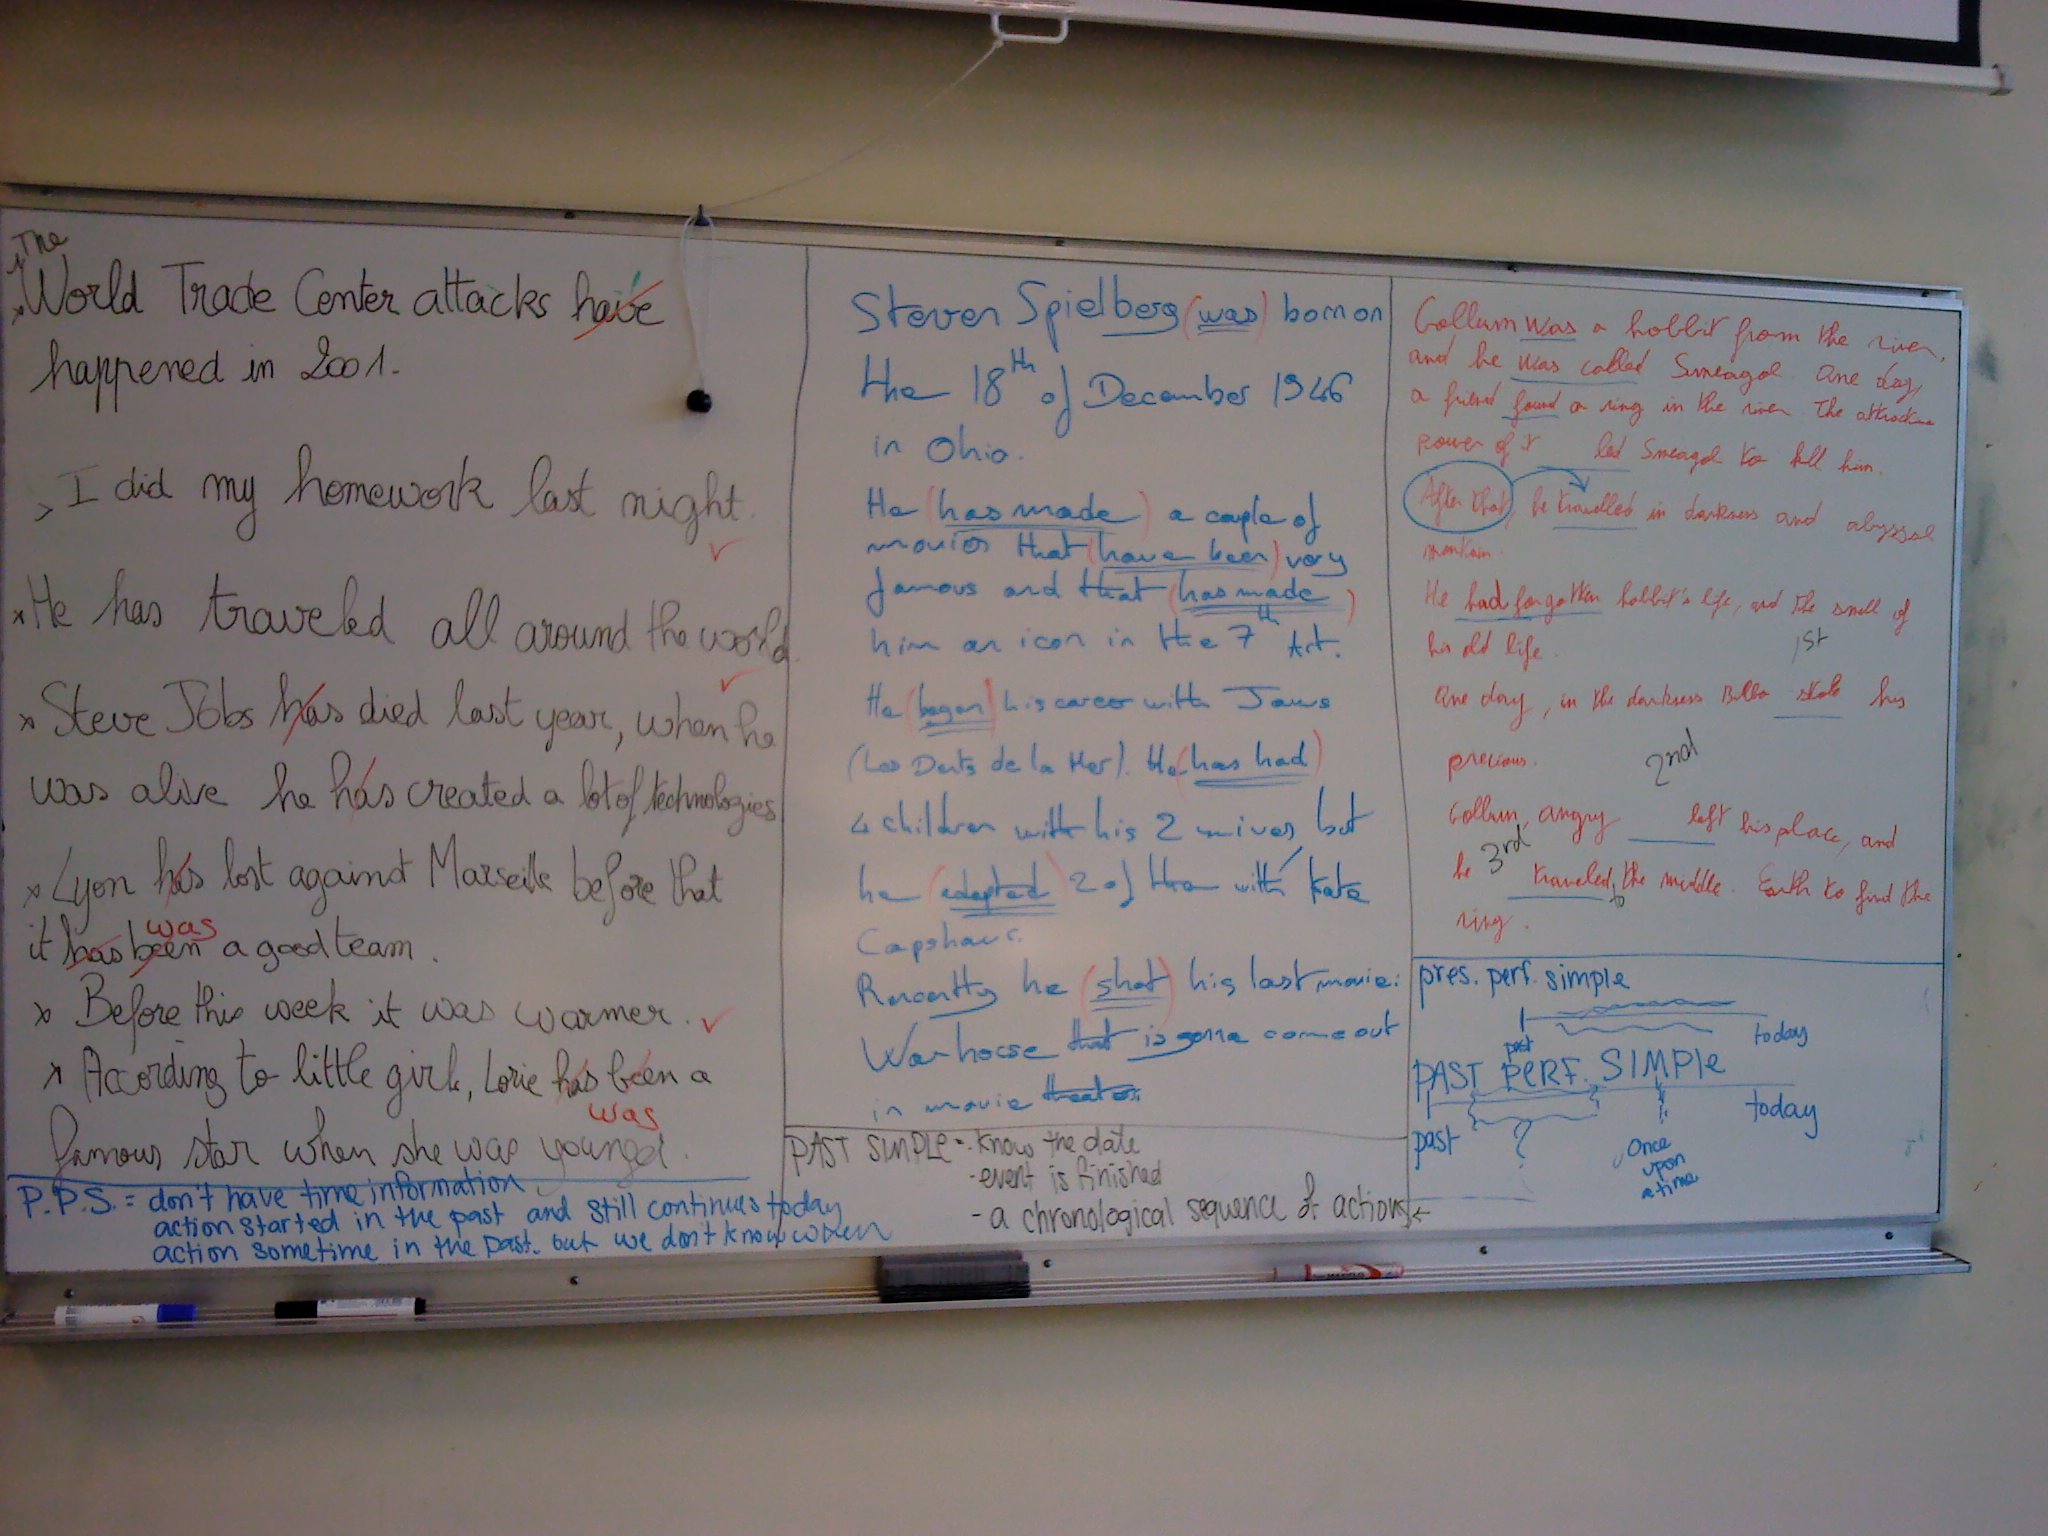 The
World Trade Center attacks have
happened in 2001.
I did my homework last night.
He has traveled all around the world.
Steve Jobs has died last year, when he
was alive he has created a lot of technologies
Lyon has lost against Marseille before that
was
it has been a good team.
Before this week it was warmer.
According to little girls, Lorie has been a
was
famous star when she was younger.
P.P.S. = don't have time information
action started in the past and still continues today
action sometime in the past. but we don't know when
Steven Spielberg (was) born on
the 18th of December 1946
in Ohio.
He (has made) a couple of
movies that (have been) very
famous and that (has made)
him an icon in the 7th Art.
He (began) his career with Jaws
(Les Dents de la Mer). He (has had)
4 children with his 2 wives, but
he (adopted) 2 of the with Kate
Capshaw.
Recently he (shot) his last movie:
Warhorse that is gonna come out
in movie theater
PAST SIMPLE = - know the date
- event is finished
- a chronological sequence of actions
Gollum was a hobbit from the river,
and he was called Smeagol. One day,
a friend found a ring in the river. The attractive
power of it led Smeagol to kill him.
After that, he travelled in darkness and abyssal
He had forgotten hobbit's life, and the smell of
his old life.
1st
One day, in the darkness Bilbo stole his
precious.
2nd
Gollum, angry left his place, and
he 3rd traveled to the middle Earth to find the
ring.
pres. perf. simple
past
today
PAST PERF. SIMPLE
past
?
Once
upon
a time
today